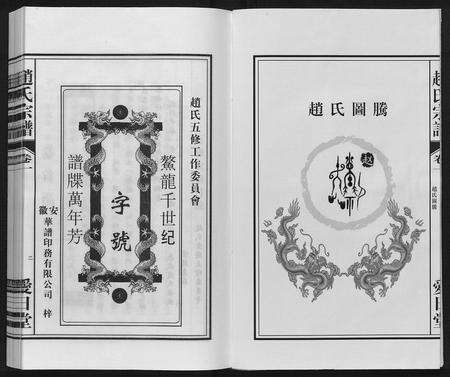 趙氏圖騰
趙
趙氏宗譜
卷一
趙氏圖騰
愛日堂
趙氏五修工作委員會
鰲龍千世纪
字號
譜牒萬年芳
安徽華譜印務有限公司 梓
趙氏宗譜
卷一
二
愛日堂